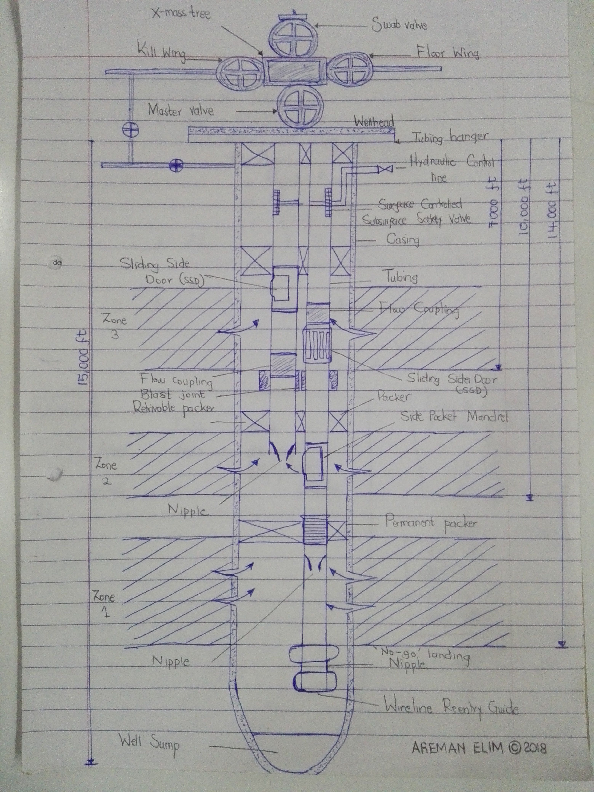 X-mass tree
Swab valve
Kill Wing
Floor Wing
Master valve
Wellhead
Tubing hanger
Hydraulic Control
line
Surface Controlled
Subsurface Safety Valve
Casing
7,000 ft
10,000 ft
14,000 ft
15,000 ft
Sliding Side
Door (SSD)
Tubing
Flow Coupling
Zone
3
Sliding Side Door
(SSD)
Flow Coupling
Blast joint
Retrivable packer
Packer
Side Pocket Mandrel
Zone
2
Nipple
Permanent packer
Zone
1
Nipple
No-go landing
Nipple
Wireline Reentry Guide
Well Sump
AREMAN ELIM © 2018